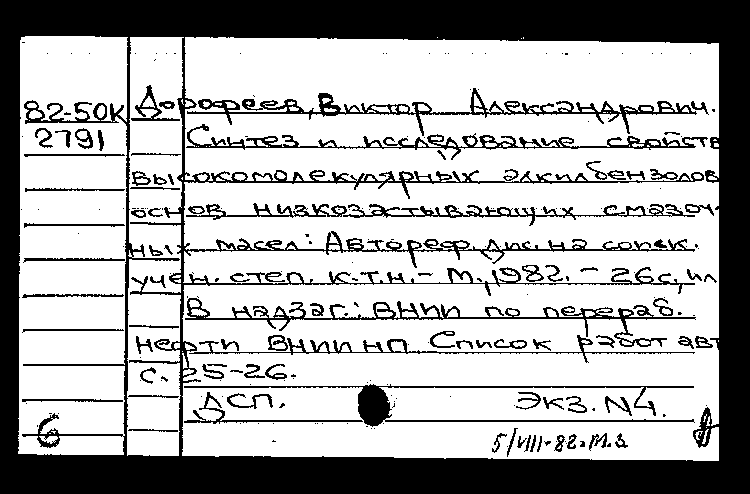 82-50к Дорофеев, Виктор Александрович.
2791 Синтез и исследование свойств
высокомолекулярных алкилбензолов
основ низкозастывающих смазоч-
ных масел: Автореф. дис. на соиск.
учен. степ. к.т.н. - М., 1982. - 26с, ил
В надзаг.: ВНИИ по перераб.
нефти ВНИИ НП Список работ авт
с. 25-26.
ДСП. Экз. N4.
6 5/VIII-82. М.З